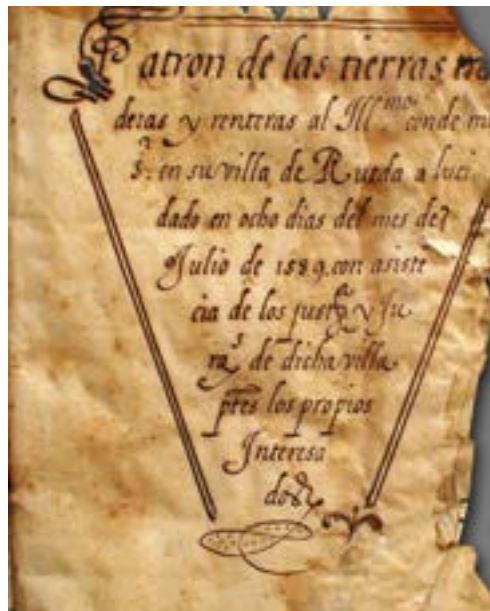 Patron de las tierras
deras y renteras al Ill.mo conde
s.r en su villa de Rueda a luci
dado en ocho dias del mes de
Julio de 1589. con asiste
cia de los justas y Ju
ras de dicha villa
ptes los propios
Interesa
dos